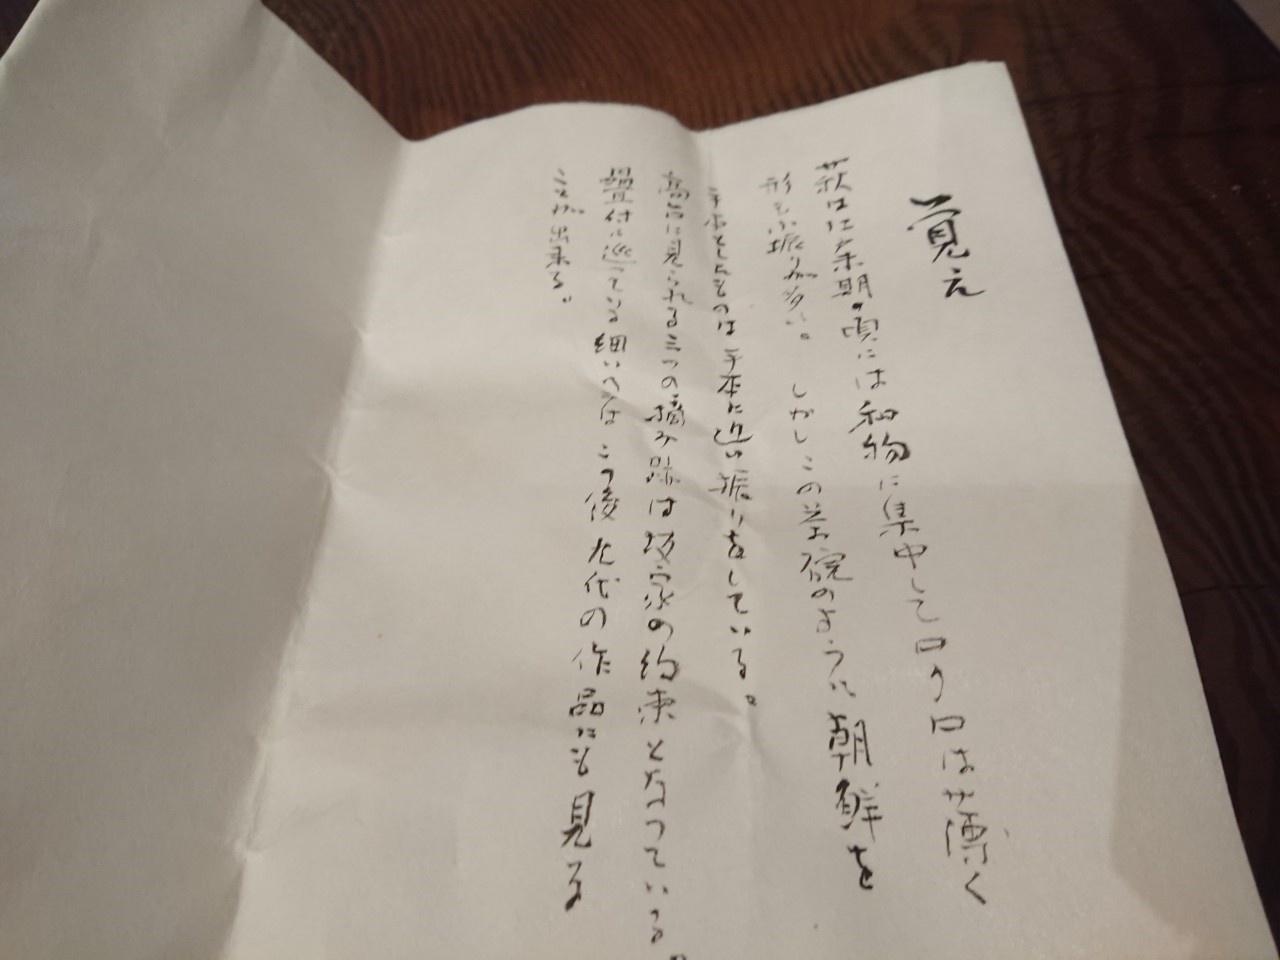 覚え
萩は江戸末期の頃には和物に集中して口の口は薄く
形も小振りが多い。しかしこの茶碗のように朝鮮を
手本としたものは手本に近い振りをしている。
高台に見られる三つの摘み跡は坂家の約束となっている。
畳付に巡っている細いへらはこの後九代の作品にも見る
ことが出来る。